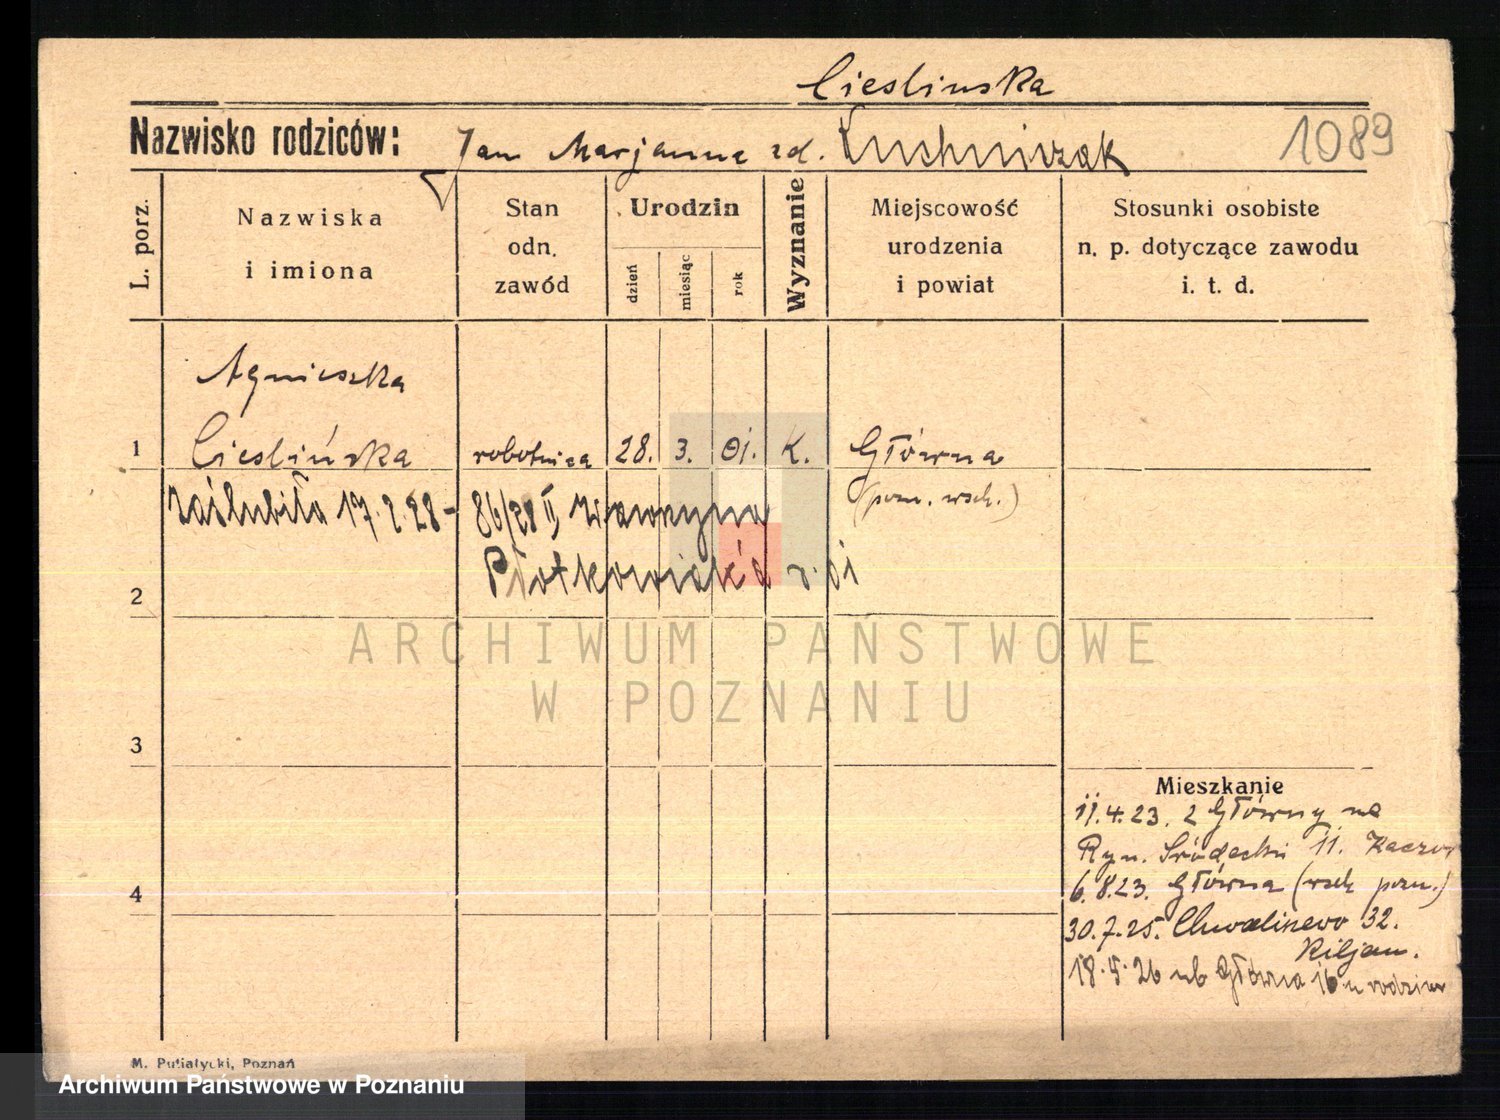 Cieslinska
Nazwisko rodziców: Jan Marjanna zd. 1089
L. porz.
Nazwiska
i imiona
Stan
odn.
zawód
Urodzin
dzień
miesiąc
rok
Wyznanie
Miejscowość
urodzenia
i powiat
Stosunki osobiste
n. p. dotyczące zawodu
i. t. d.
Agnieszka
1 Cieslińska robotnica 28. 3. 01. K. Główna
(pozn. wsch.)
zaślubiła 17. 2. 28 - 86/28 II, Wawrzyna
Płotkowiak'a
2
3
4
Mieszkanie
11.4.23. z Główny na
Ryn. Śródecki 11.
6.8.23. Główna (wsch. pozn.)
30.7.25. Chwaliszewo 32.
Kiljan.
18.5.26 ub Główna 16 u
M. Putiatycki, Poznań
ARCHIWUM PAŃSTWOWE
W POZNANIU
Archiwum Państwowe w Poznaniu